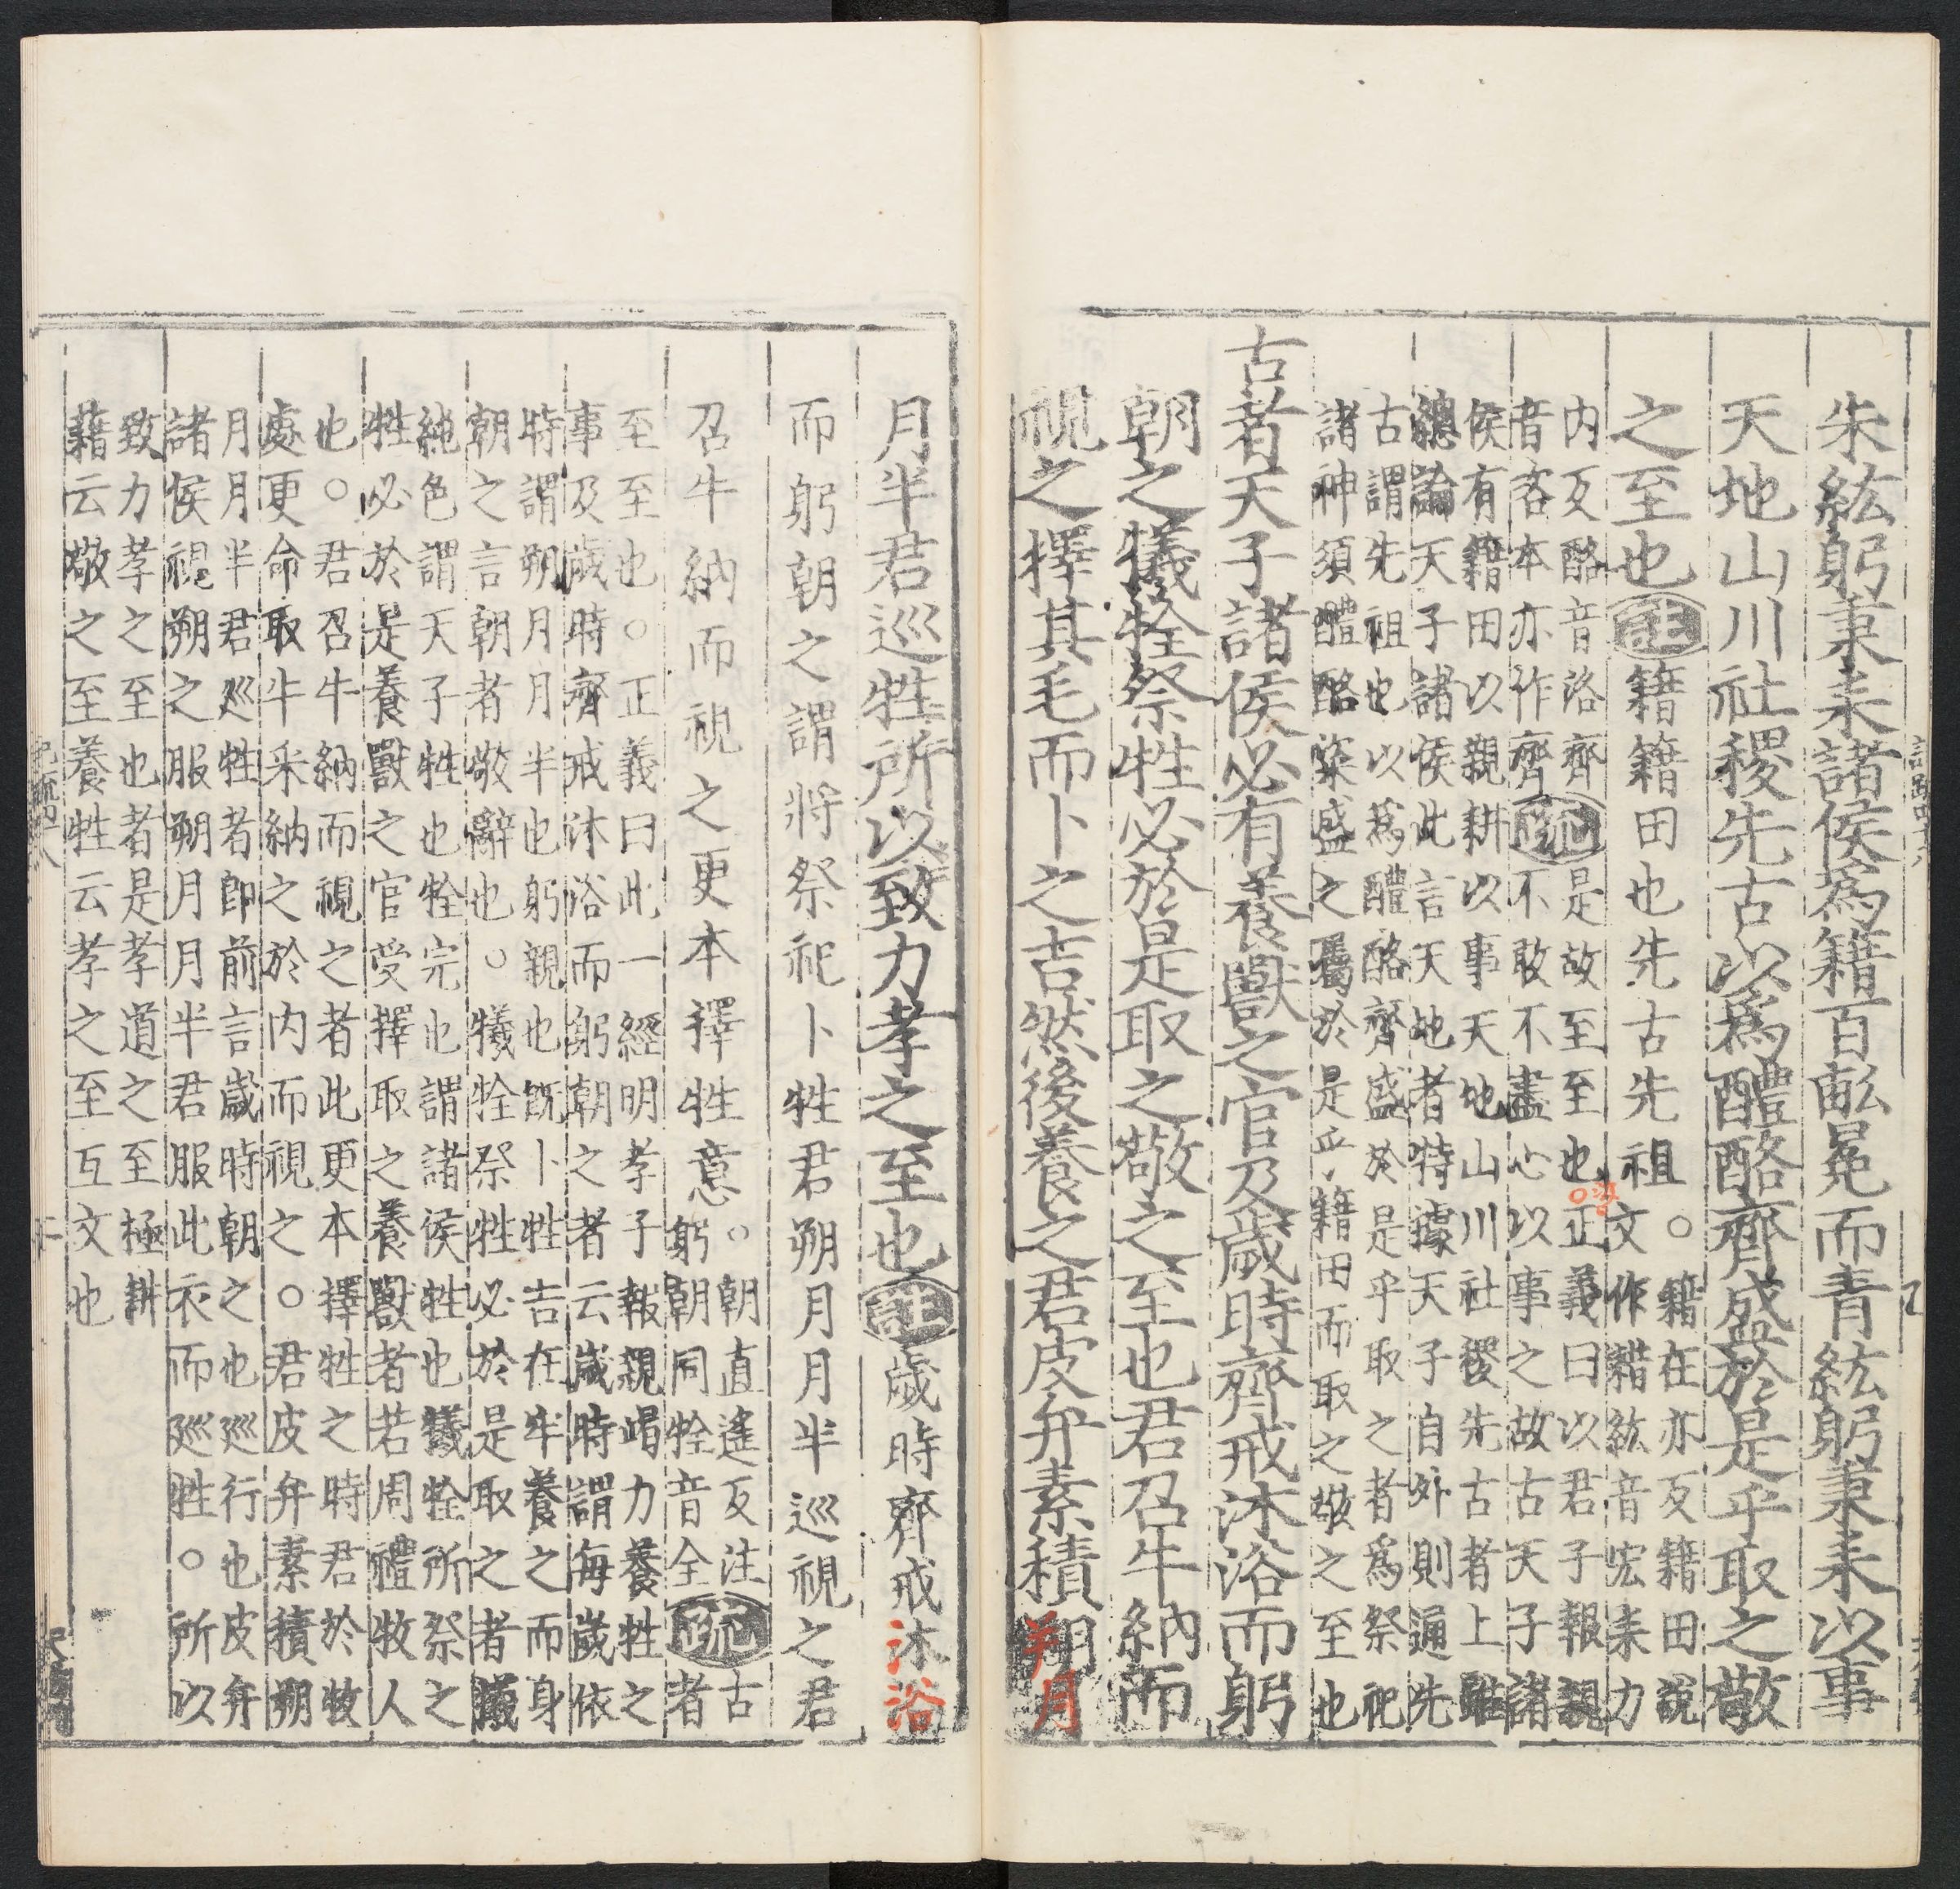 朱紘躬秉耒諸侯為籍百畝冕而青紘躬秉耒以事
天地山川社稷先古以為醴酪齊盛於是乎取之敬
之至也
註
籍籍田也先古先祖
○籍在亦反籍田說
文作耤紘音宏耒力
內反酪音洛齊
音咨本亦作齊
疏
是故至至也○正義曰以君子報親
不敢不盡心以事之故古天子諸
侯有籍田以親耕以事天地山川社稷先古者上雖
總論天子諸侯此言天地者特據天子自外則通先
古謂先祖也以為醴酪齊盛於是乎取之者為祭祀
諸神須醴酪粢盛之屬於是乎籍田而取之敬之至也
古者天子諸侯必有養獸之官及歲時齊戒沐浴而躬
朝之犧牷祭牲必於是取之敬之至也君召牛納而
視之擇其毛而卜之吉然後養之君皮弁素積朔月
月半君巡牲所以致力孝之至也
註
歲時齊戒沐浴
而躬朝之謂將祭祀卜牲君朔月月半巡視之君
召牛納而視之更本擇牲意
○朝直遙反注
躬朝同牷音全
疏
古
者
至至也○正義曰此一經明孝子報親竭力養牲之
事及歲時齊戒沐浴而躬朝之者云歲時謂每歲依
時謂朔月月半也躬親也既卜牲吉在牢養之而身
朝之言朝者敬辭也○犧牷祭牲必於是取之者犧
純色謂天子牲也牷完也謂諸侯牲也犧牷所祭之
牲必於是養獸之官受擇取之養獸者若周禮牧人
也○君召牛納而視之者此更本擇牲之時君於牧
處更命取牛采納之於內而視之○君皮弁素積朔
月月半君巡牲者即前言歲時朝之也巡行也皮弁
諸侯視朔之服朔月月半君服此衣而巡牲○所以
致力孝之至也者是孝道之至極耕
藉云敬之至養牲云孝之至互文也